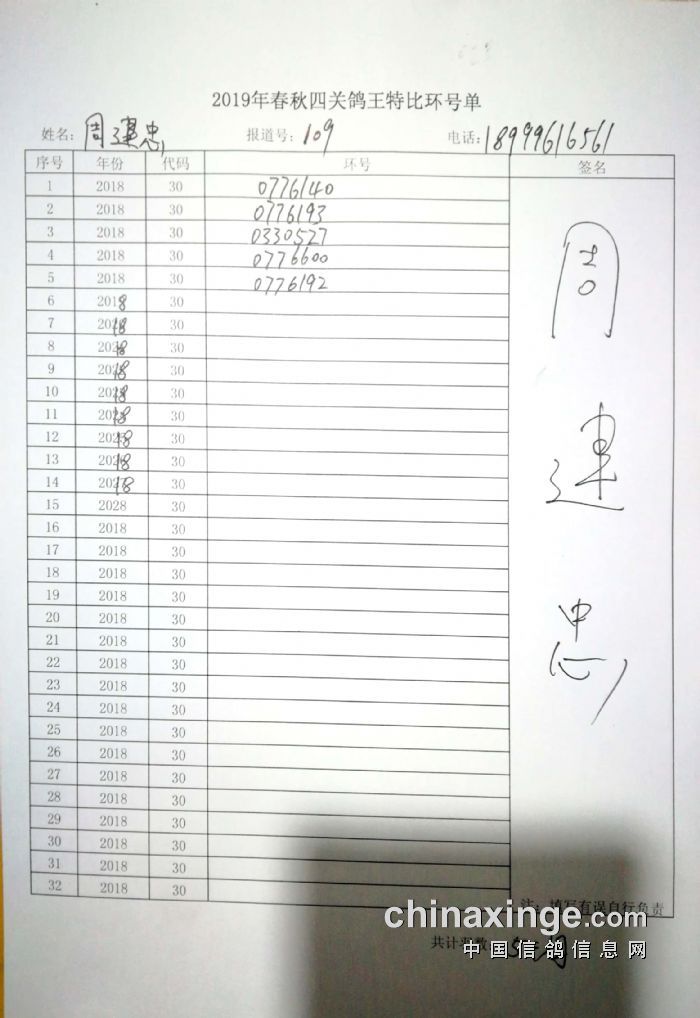 2019年春秋四关鸽王特比环号单
姓名: 周建忠 报道号: 109 电话: 18999616561
序号 年份 代码 环号 签名
1 2018 30 0776140
2 2018 30 0776193
3 2018 30 0330527
4 2018 30 0776600
5 2018 30 0776192
6 2018 30
7 2018 30
8 2018 30
9 2018 30
10 2018 30
11 2018 30
12 2018 30
13 2018 30
14 2018 30
15 2028 30
16 2018 30
17 2018 30
18 2018 30
19 2018 30
20 2018 30
21 2018 30
22 2018 30
23 2018 30
24 2018 30
25 2018 30
26 2018 30
27 2018 30
28 2018 30
29 2018 30
30 2018 30
31 2018 30
32 2018 30
周
建
忠
注: 填写有误自行负责
chinaxinge.com
共计羽数
中国信鸽信息网